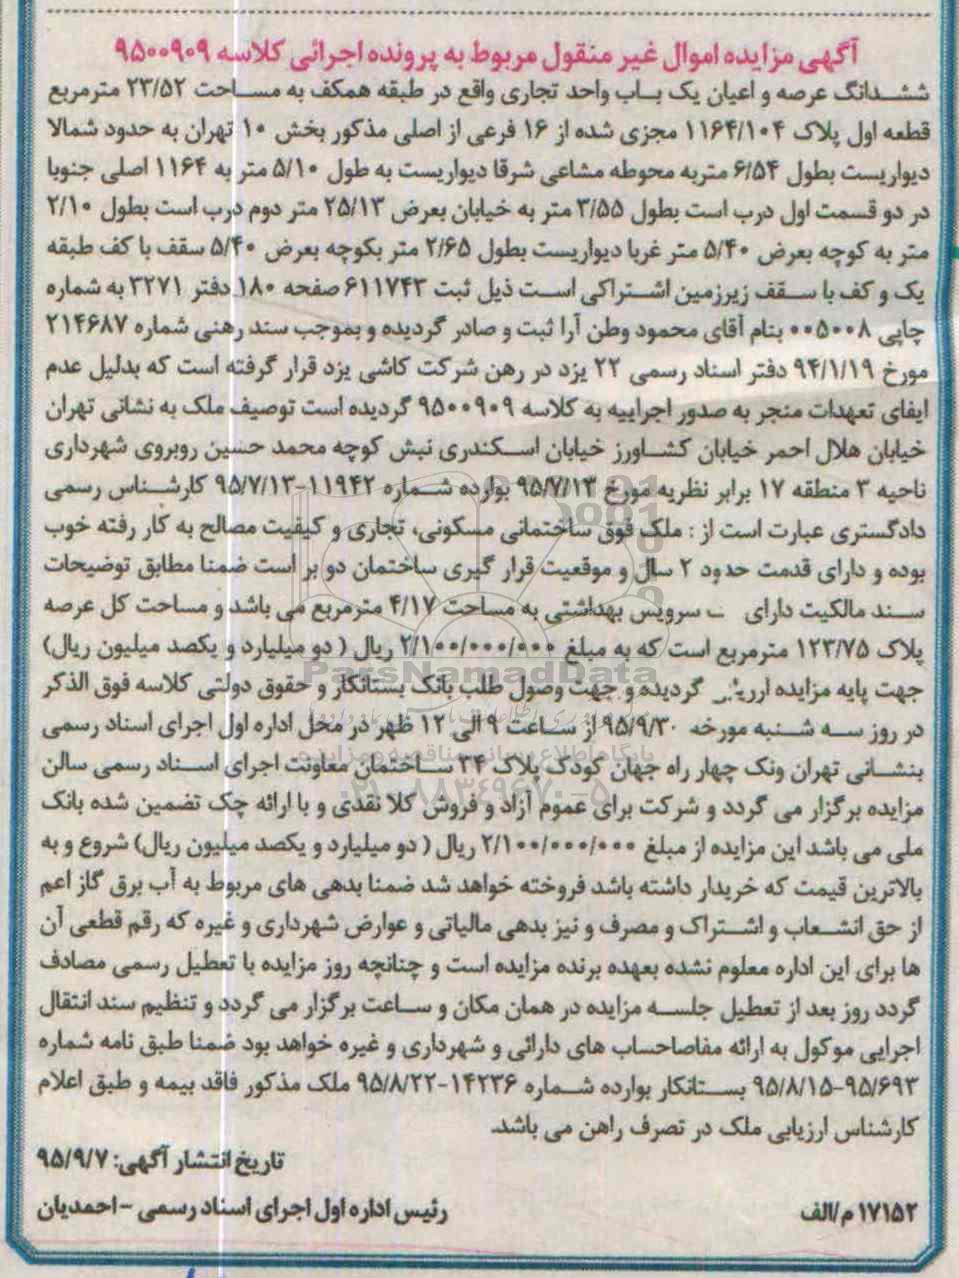 آگهی مزایده اموال غیر منقول مربوط به پرونده اجرائی کلاسه ۹۵۰۰۹۰۹
ششدانگ عرصه و اعیان یک باب واحد تجاری واقع در طبقه همکف به مساحت ۲۳/۵۲ مترمربع
قطعه اول پلاک ۱۱۶۴/۱۰۴ مجزی شده از ۱۶ فرعی از اصلی مذکور بخش ۱۰ تهران به حدود شمالا
دیواریست بطول ۶/۵۴ متربه محوطه مشاعی شرقا دیواریست به طول ۵/۱۰ متر به ۱۱۶۴ اصلی جنوبا
در دو قسمت اول درب است بطول ۳/۵۵ متر به خیابان بعرض ۲۵/۱۳ متر دوم درب است بطول ۲/۱۰
متر به کوچه بعرض ۵/۴۰ متر غربا دیواریست بطول ۲/۶۵ متر بکوچه بعرض ۵/۴۰ سقف با کف طبقه
یک و کف با سقف زیرزمین اشتراکی است ذیل ثبت ۶۱۱۷۴۳ صفحه ۱۸۰ دفتر ۳۲۷۱ به شماره
چاپی ۰۰۵۰۰۸ بنام آقای محمود وطن آرا ثبت و صادر گردیده و بموجب سند رهنی شماره ۲۱۴۶۸۷
مورخ ۹۴/۱/۱۹ دفتر اسناد رسمی ۲۲ یزد در رهن شرکت کاشی یزد قرار گرفته است که بدلیل عدم
ایفای تعهدات منجر به صدور اجراییه به کلاسه ۹۵۰۰۹۰۹ گردیده است توصیف ملک به نشانی تهران
خیابان هلال احمر خیابان کشاورز خیابان اسکندری نبش کوچه محمد حسین روبروی شهرداری
ناحیه ۳ منطقه ۱۷ برابر نظریه مورخ ۹۵/۷/۱۳ بوارده شماره ۱۱۹۴۲-۹۵/۷/۱۳ کارشناس رسمی
دادگستری عبارت است از : ملک فوق ساختمانی مسکونی، تجاری و کیفیت مصالح به کار رفته خوب
بوده و دارای قدمت حدود ۲ سال و موقعیت قرار گیری ساختمان دو بر است ضمنا مطابق توضیحات
سند مالکیت دارای سرویس بهداشتی به مساحت ۴/۱۷ مترمربع می باشد و مساحت کل عرصه
پلاک ۱۲۳/۷۵ مترمربع است که به مبلغ ۲/۱۰۰/۰۰۰/۰۰۰ ریال ( دو میلیارد و یکصد میلیون ریال)
جهت پایه مزایده گردیده و جهت وصول طلب بانک بستانکار و حقوق دولتی کلاسه فوق الذکر
در روز سه شنبه مورخه ۹۵/۹/۳۰ از ساعت ۹ الی ۱۲ ظهر در محل اداره اول اجرای اسناد رسمی
بنشانی تهران ونک چهار راه جهان کودک پلاک ۳۴ ساختمان معاونت اجرای اسناد رسمی سالن
مزایده برگزار می گردد و شرکت برای عموم آزاد و فروش کلا نقدی و با ارائه چک تضمین شده بانک
ملی می باشد این مزایده از مبلغ ۲/۱۰۰/۰۰۰/۰۰۰ ریال ( دو میلیارد و یکصد میلیون ریال) شروع و به
بالاترین قیمت که خریدار داشته باشد فروخته خواهد شد ضمنا بدهی های مربوط به آب برق گاز اعم
از حق انشعاب و اشتراک و مصرف و نیز بدهی مالیاتی و عوارض شهرداری و غیره که رقم قطعی آن
ها برای این اداره معلوم نشده بعهده برنده مزایده است و چنانچه روز مزایده با تعطیل رسمی مصادف
گردد روز بعد از تعطیل جلسه مزایده در همان مکان و ساعت برگزار می گردد و تنظیم سند انتقال
اجرایی موکول به ارائه مفاصاحساب های دارائی و شهرداری و غیره خواهد بود ضمنا طبق نامه شماره
۹۵/۶۹۳-۹۵/۸/۱۵ بستانکار بوارده شماره ۱۴۲۳۶-۹۵/۸/۲۲ ملک مذکور فاقد بیمه و طبق اعلام
کارشناس ارزیابی ملک در تصرف راهن می باشد.
تاریخ انتشار آگهی: ۹۵/۹/۷
۱۷۱۵۲م/الف
رئیس اداره اول اجرای اسناد رسمی - احمدیان
ParsNamadData
پایگاه اطلاع رسانی مناقصه و مزایده
۰۲۱-۸۸۳۴۹۶۷۰-۵